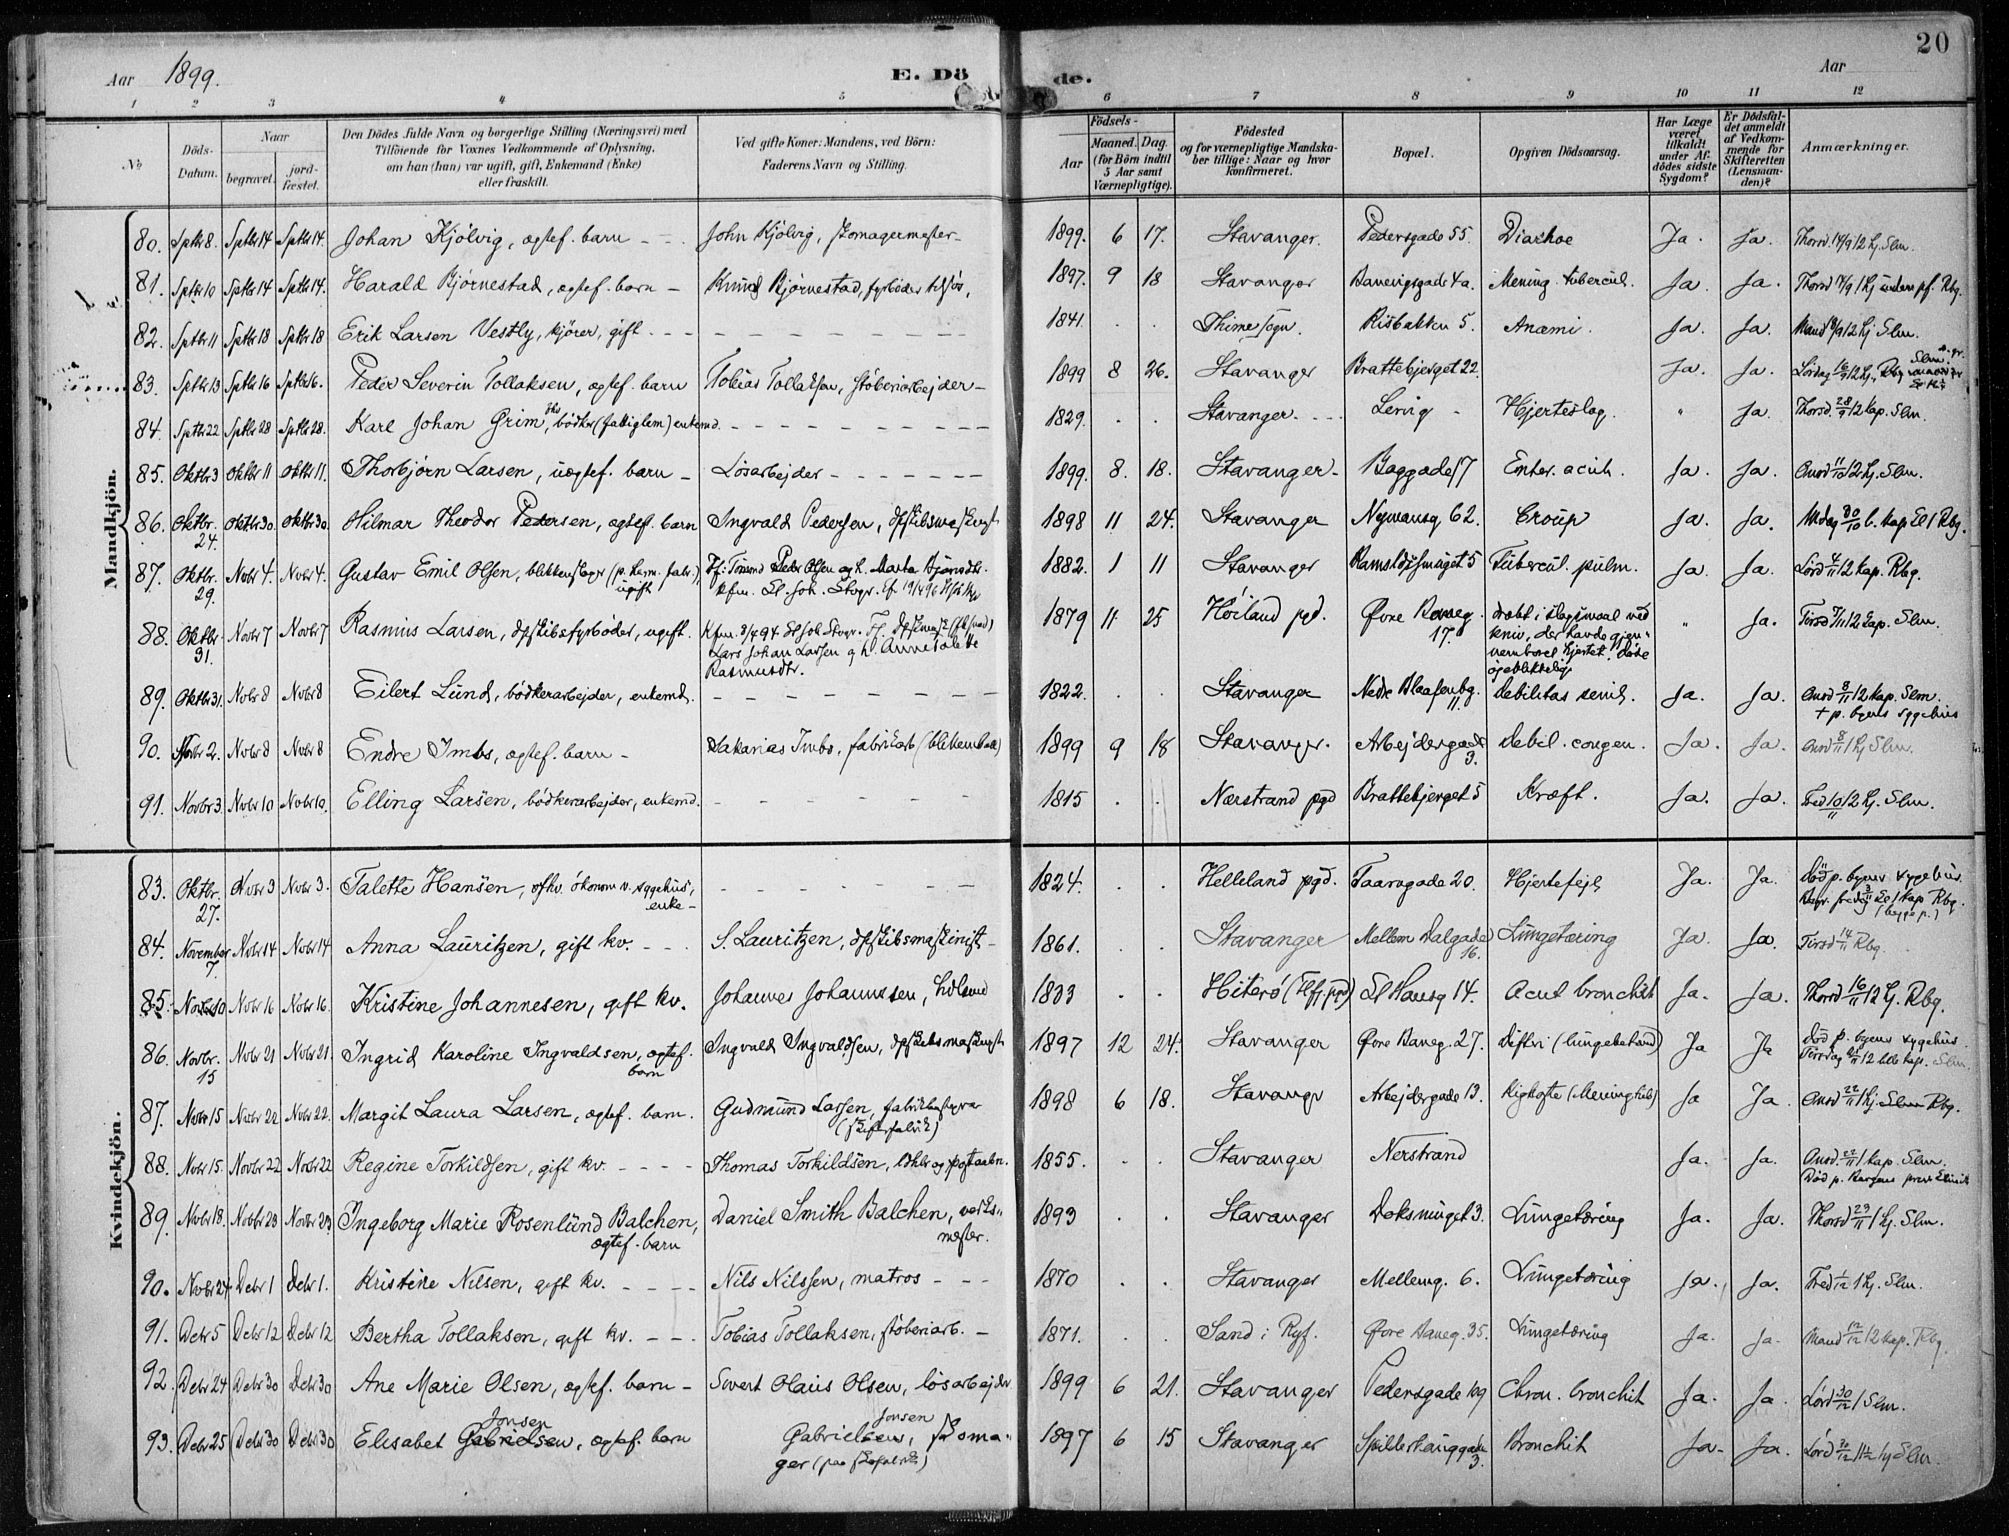 20
Aar 1899. E. Dö de. Aar
1 2 3 4 5 6 7 8 9 10 11 12
№
Döds-Datum.
Naar
begravet.
jord-fæstet.
Den Dödes fulde Navn og borgerlige Stilling (Næringsvei) med
Tilföiende for Voxnes Vedkommende af Oplysning,
om han (hun) var ugift, gift, Enkemand (Enke)
eller fraskilt.
Ved gifte Koner: Mandens, ved Börn:
Faderens Navn og Stilling.
Födsels-
Aar
Maaned. Dag.
(for Börn indtil
5 Aar samt
Værnepligtige).
Födested
og for værnepligtige Mandska-
ber tillige: Naar og hvor
konfirmeret.
Bopæl.
Opgiven Dödsaarsag.
Har Læge
været
tilkaldt
under Af-
dödes sidste
Sygdom?
Er Dödsfal-
det anmeldt
af Vedkom-
mende for
Skifteretten
(Lensman-
den)?
Anmærkninger.
Mandkjön.
80. Sptbr 8. Sptbr 14 Sptbr 14. Johan Kjölvig, ægtef. barn John Kjölvig, skomagermester 1899. 6 17. Stavanger. Pedersgade 55. Diarhoe Ja. Ja. Thorsd. 14/9 12 Kj. Slm.
81. Sptbr 10 Sptbr 14 Sptbr 14. Harald Bjørnestad, ægtef. barn Knud Bjørnestad, fyrbøder tilsjøs, 1897. 9 18 Stavanger Banevigsgade 4a. Mening. tubercul. Ja. Ja. Thorsd 14/9 1 Kj uden pf. Rbg.
82. Sptbr 11 Sptbr 18 Sptbr 18 Erik Larsen Vestly, kjører, gift 1841. . . Thime sogn. Risbakken 5. Anæmi. Ja. Ja. Mand 18/9 12 Kj Slm.
83. Sptbr 13 Sptbr 16 Sptbr 16. Peder Severin Tollaksen, ægtef. barn Tobias Tollaksen, støberiarbejder 1899 8 26. Stavanger Brattebjerget 22. Ja. Ja. Lørdag 16/9 12 Kj. Rbg Slm.
84. Sptbr 22 Sptbr 28 Sptbr 28. Karl Johan Grim, fhv bødker (fattiglem) enkemd. 1829. . . Stavanger. Lervig Hjerteslag. " Ja. Thorsd. 28/9 12 kap. Slm.
85. Oktbr 3 Oktbr 11 Oktbr 11. Thorbjørn Larsen, uægtef. barn Løsarbejder 1899. 8. 18. Stavanger Baggade 17 Enter. acut. Ja. Ja. Onsd 11/10 12 Kj. Slm.
86. Oktbr. 24. Oktbr 30. Oktbr 30. Hilmar Theodor Pedersen, ægtef. barn Ingvald Pedersen, dpskibsmaskinist 1898 11 24. Stavanger Nymansg 62. Croup Ja. Ja. Mdag 30/10 Rbg.
87. Oktbr. 29. Nobr 4. Nobr 4. Gustav Emil Olsen, blikkenslager (p. herm. fabr.), ugift F: Tømmd Peder Olsen og h. Marta Bjørnsdtr. Kfm. St. Joh. Stvgr. 1882. 1 11 Stavanger Ramsldssmuget 5 Tubercul. pulm. Ja. Ja. Lørd 4/11 12 kap. Rbg.
88. Oktbr. 31. Novbr 7 Novbr 7 Rasmus Larsen, dpskibsfyrbøder, ugift. Kfm. 8/4 94 St Joh Stvgr. Lars Johan Larsen og h. Anne Talette Rasmusdtr. 1879 11. 25 Høiland pgd. Øvre Baneg. 17. dræbt i slagsmaal ved kniv, der havde gjen-nemboret hjertet. Døde øieblikkelig " Ja. Tirsd 7/11 12 kap. Slm.
89. Oktbr 31. Nobr 8 Nobr 8 Eilert Lund, bødkerarbejder, enkemd. 1822. . . Stavanger Nedre Blaasenbg. 11. debilitas senil. Ja. Ja. Onsd 8/11 12 kap. Slm. + p. byens sygehus
90. Novbr 2. Nobr 8 Nobr 8 Endre Imbs, ægtef. barn Zakarias Imbs, fabrikarb 1899 9 18 Stavanger. Arbejdergade 3. debil. congen. Ja. Ja. Onsd 8/11 1 Kj Slm.
91. Novbr 3. Nobr 10 Nobr 10. Elling Larsen, bødkerarbejder, enkemd. 1815 . . Nærstrand pgd Brattebjerget 5 Kræft. Ja. Ja. Fred 10/11 12 Kj. Slm.
Kvindekjön.
83. Oktbr. 27. Novbr 3 Novbr 3. Talette Hansen, økonom v. sygehus, enke 1824. . . Helleland pgd. Taarngade 20. Hjertefejl Ja. Ja. død p. byens sygehus. Begr. fredag 3/11 kap Rbg.
84. November 7. Novbr 14 Nobr 14 Anna Lauritzen, gift kv. S. Lauritzen, dpskibsmaskinist 1861. . . Stavanger Mellem Dalgade 16. Lungetæring Ja. Ja. Tirsd 14/11 Rbg.
85. Novbr 10 Nobr 16 Nobr 16. Kristine Johannesen, gift kv. Johannes Johannssen, 1833 . . Hiterö St Hansg 14. Acut bronchit Ja. Ja. Thorsd 16/11 12 Kj. Rbg.
86. Novbr. 15 Nobr 21 Nobr 21. Ingrid Karoline Ingvaldsen, ægtef. barn Ingvald Ingvaldsen, dpskibsmaskinist 1897 12 24. Stavanger Øvre Baneg. 27. Difteri (lungebetænd) Ja Ja død p. byens sygehus. Tirsdag 21/11 12 kap. Slm.
87. Nobr 15 Nobr 22 Nobr 22. Margit Laura Larsen, ægtef. barn. Gudmund Larsen, 1898 6 18. Stavanger Arbejdergade 13. Kighoste (Mening tub) Ja Ja Onsd 22/11 1 Kj. Slm Rbg.
88. Nobr 15. Novbr 22 Nobr 22 Regine Torkildsen, gift kv. Thomas Torkildsen, 1855. . . Stavanger Nerstrand Ja. Ja. Onsd. 22/11 1 kap. Slm. Død p. Bergens priv klinik
89. Nobr 18. Nobbr 23 Novbr 23 Ingeborg Marie Rosenlund Balchen, ægtef. barn Daniel Smith Balchen, verks-mester. 1893 . . Stavanger Doksmuget 3. Lungetæring Ja. Ja. Thorsd 23/11 1 Kj. Slm.
90. Novbr 24 Debr 1 Debr 1. Kristine Nilsen, gift kv. Nils Nilssen, matros 1870 . . Stavanger Mellemg. 6. Lungetæring Ja. Ja. Fred 1/12 1 Kj. Slm.
91. Debr 5 Debr 12 Debr 12 Bertha Tollaksen, gift kv. Tobias Tollaksen, støberiarb. 1871. . . Sand i Ryf. Øvre Baneg. 35. Lungetæring Ja. Ja. Mand 12/12 12 kap. Rbg.
92. Debr 24 Debr 30 Debr 30 Ane Marie Olsen, ægtef. barn Sivert Olaus Olsen, løsarbejder 1899 6 21. Stavanger Pedersgade 109 Chron. bronchit Ja. Ja. Lørd 30/12 1 Slm.
93. Debr 25 Debr 30 Debr 30 Elisabet Gabrielsen Jonsen, ægtef. barn Gabrielsen Jonsen, skoma-ger (paa skofabrik) 1897 6 15 Stavanger Spilderhauggaden 3. Bronchit Ja. Ja. Lørd 30/12 11½ Kj Slm.